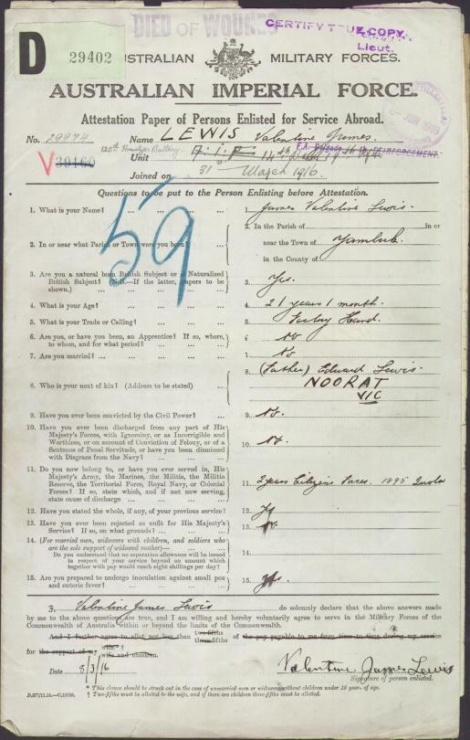 DIED of WOUNDS
CERTIFY TRUE COPY.
Lieut.
D 29402
AUSTRALIAN MILITARY FORCES.
AUSTRALIAN IMPERIAL FORCE.
Attestation Paper of Persons Enlisted for Service Abroad.
No. Name LEWIS Valentine James.
Unit A.I.F.
V 30160
Joined on 31 March 1916.
59
Questions to be put to the Person Enlisting before Attestation.
1. What is your Name? 1. James Valentine Lewis.
2. In or near what Parish or Town were you born? 2. In the Parish of in or
near the Town of Yambuk.
in the County of
3. Are you a natural born British Subject or a Naturalized
British Subject? N.B.—If the latter, papers to be
shown.) 3. Yes.
4. What is your Age? 4. 21 years 1 month.
5. What is your Trade or Calling? 5. Hand.
6. Are you, or have you been, an Apprentice? If so, where,
to whom, and for what period? 6. No
7. Are you married? 7. No
8. Who is your next of kin? (Address to be stated) 8. (Father) Edward Lewis.
NOORAT
VIC
9. Have you ever been convicted by the Civil Power? 9. No.
10. Have you ever been discharged from any part of His
Majesty's Forces, with Ignominy, or as Incorrigible and
Worthless, or on account of Conviction of Felony, or of a
Sentence of Penal Servitude, or have you been dismissed
with Disgrace from the Navy? 10. No.
11. Do you now belong to, or have you ever served in, His
Majesty's Army, the Marines, the Militia, the Militia
Reserve, the Territorial Force, Royal Navy, or Colonial
Forces? If so, state which, and if not now serving,
state cause of discharge 11. years Citizen Forces. 1895
12. Have you stated the whole, if any, of your previous service? 12. Yes
13. Have you ever been rejected as unfit for His Majesty's
Service? If so, on what grounds? 13. No
14. (For married men, widowers with children, and soldiers who
are the sole support of widowed mother)—
Do you understand that no separation allowance will be issued
in respect of your service beyond an amount which
together with pay would reach eight shillings per day? 14.
15. Are you prepared to undergo inoculation against small pox
and enteric fever? 15. Yes.
I, Valentine James Lewis do solemnly declare that the above answers made
by me to the above questions are true, and I am willing and hereby voluntarily agree to serve in the Military Forces of the
Commonwealth of Australia within or beyond the limits of the Commonwealth.
And I further agree to allot not less than two-fifths of the pay payable to me from time to time during my service
for the support of my wife and children.
Date 8/3/16 Valentine James Lewis
Signature of person enlisted.
* This clause should be struck out in the case of unmarried men or widowers without children under 18 years of age.
† Two-fifths must be allotted to the wife, and if there are children three-fifths must be allotted.